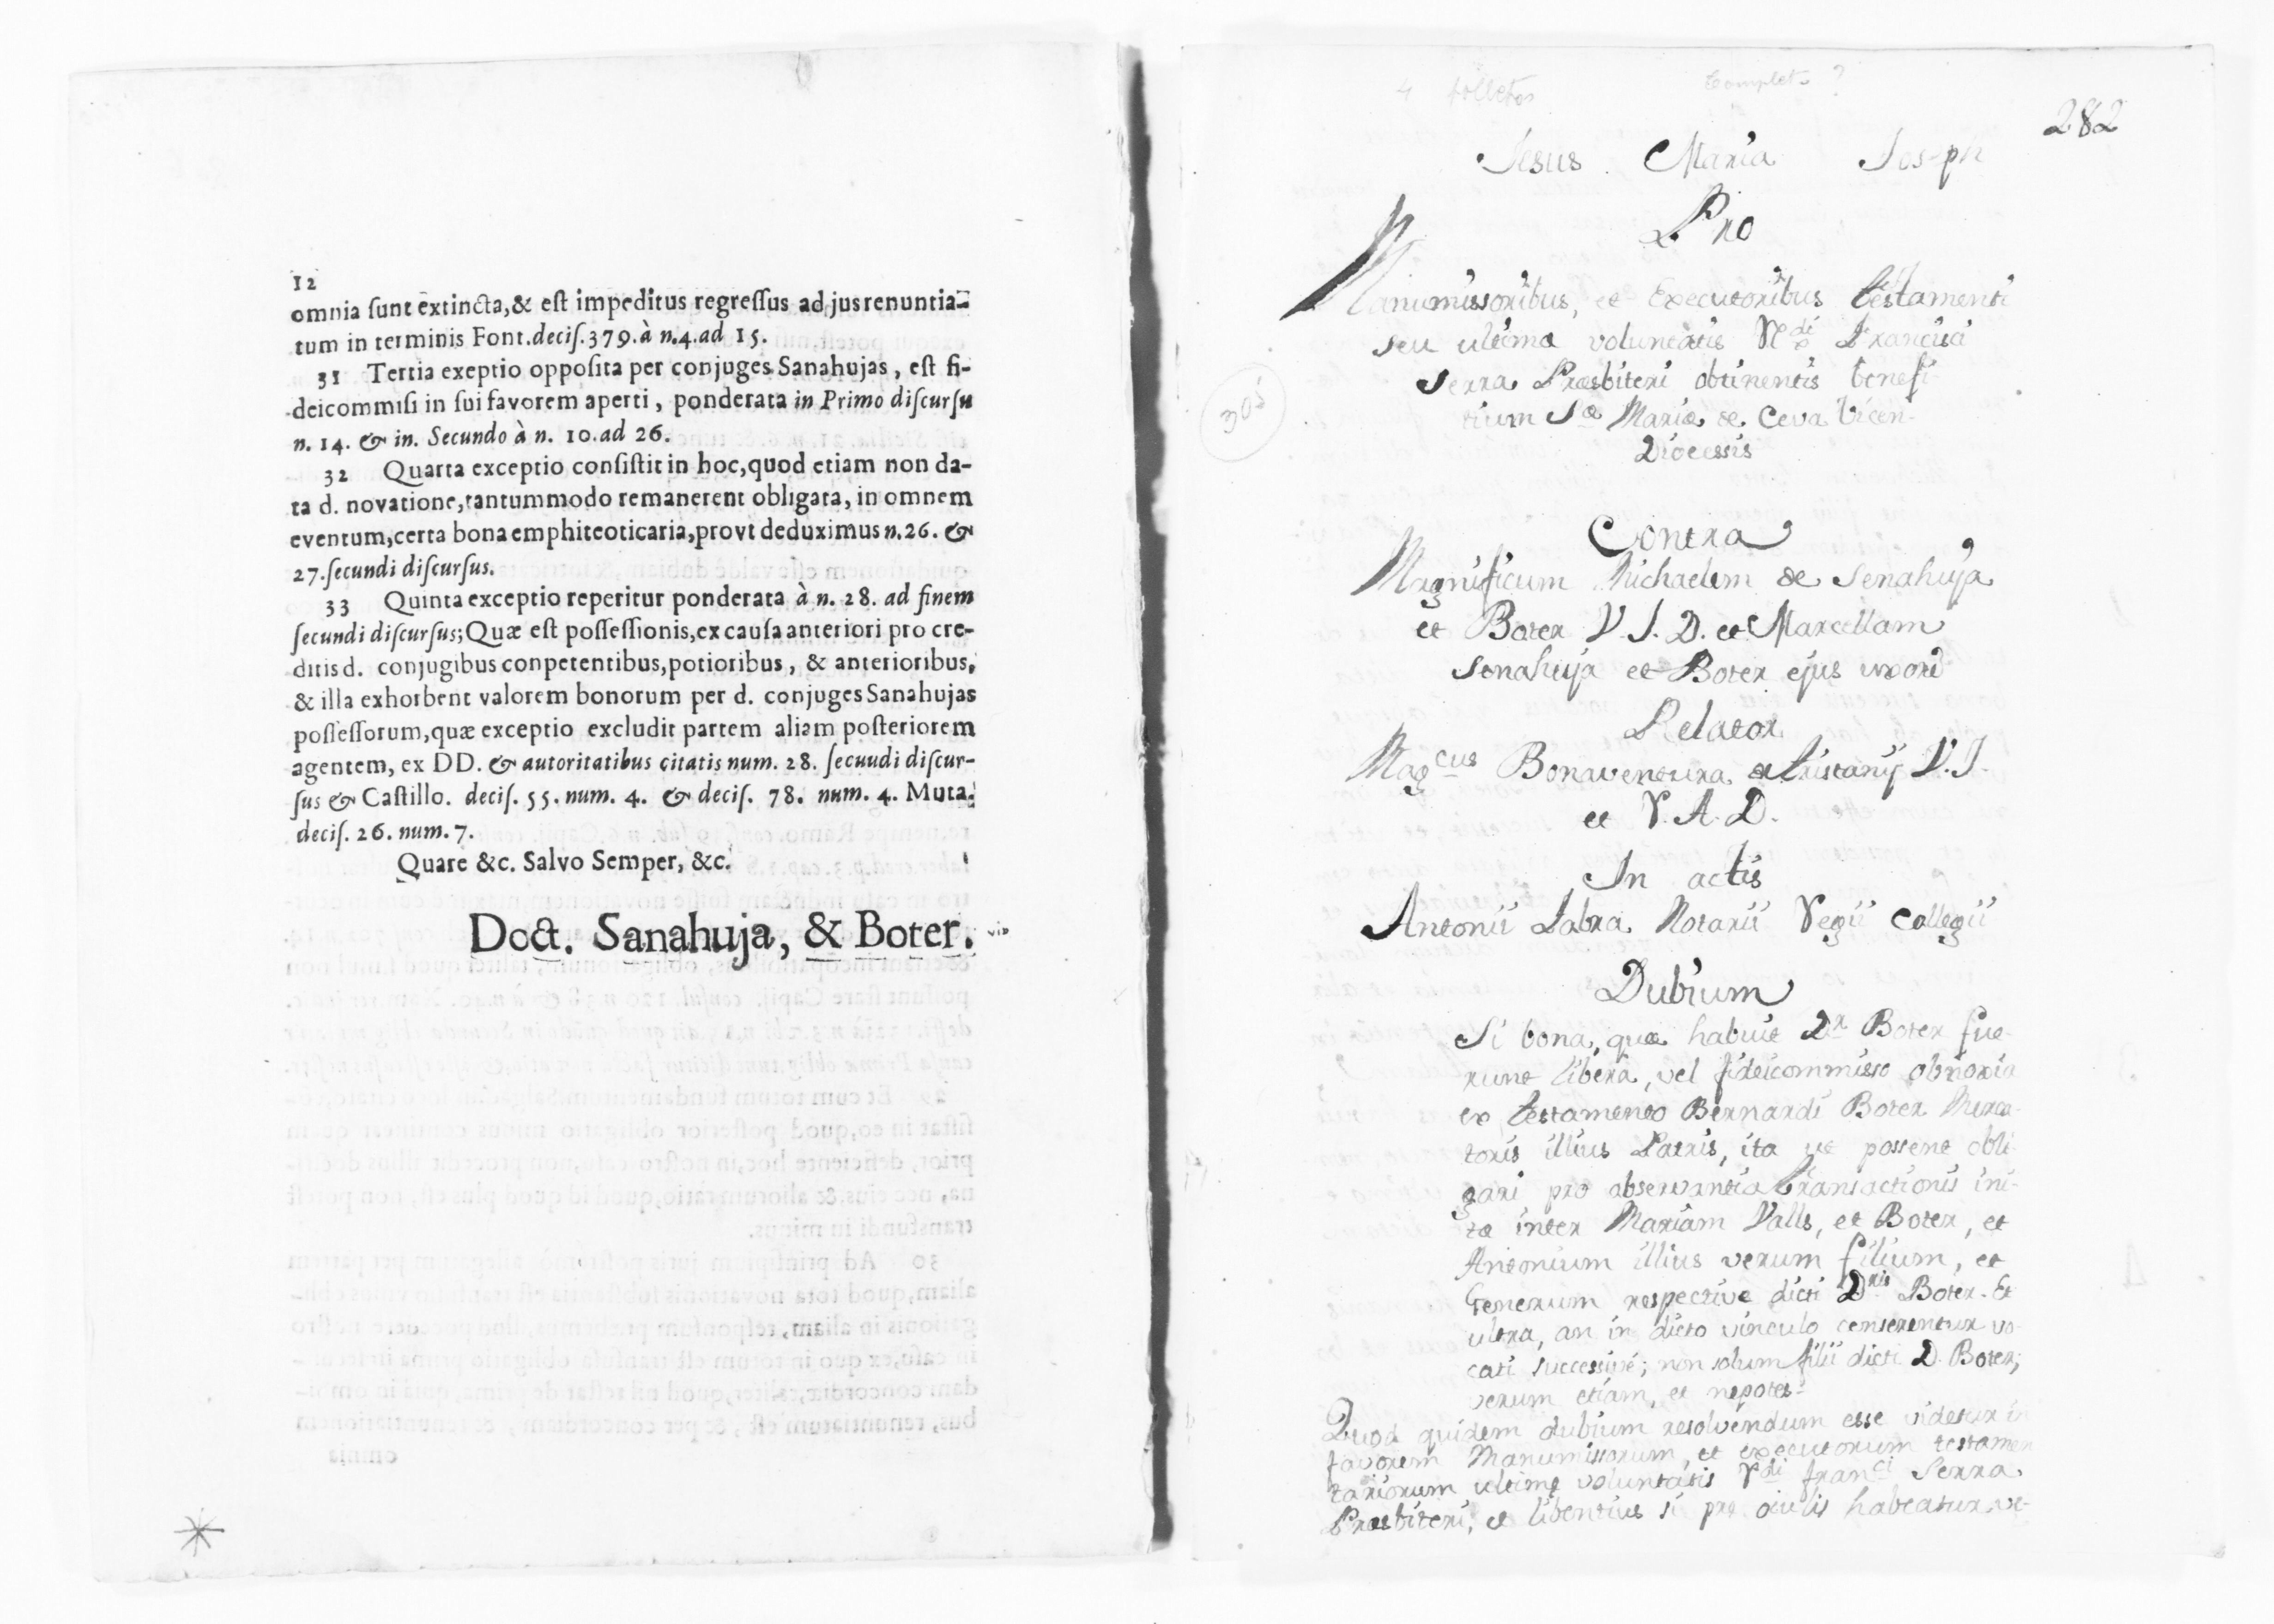 12
omnia ſunt extincta,& eſt impeditus regreſſus ad jus renuntia-
tum in terminis Font.deciſ.379.à n.4.ad 15.
31 Tertia exeptio oppoſita per conjuges Sanahujas, eſt fi-
deicommiſi in ſui favorem aperti, ponderata in Primo diſcurſu
n. 14. & in. Secundo à n. 10.ad 26.
32 Quarta exceptio conſiſtit in hoc,quod etiam non da-
ta d. novatione,tantummodo remanerent obligata, in omnem
eventum,certa bona emphiteoticaria,provt deduximus n.26. &
27.ſecundi diſcurſus.
33 Quinta exceptio reperitur ponderata à n. 28. ad finem
ſecundi diſcurſus;Quæ eſt poſſeſſionis,ex cauſa anteriori pro cre-
ditis d. conjugibus conpetentibus,potioribus, & anterioribus,
& illa exhorbent valorem bonorum per d. conjuges Sanahujas
poſſeſſorum,quæ exceptio excludit partem aliam poſteriorem
agentem, ex DD. & autoritatibus citatis num. 28. ſecuudi diſcur-
ſus & Caſtillo. deciſ. 55. num. 4. & deciſ. 78. num. 4. Muta.
deciſ. 26. num. 7.
Quare &c. Salvo Semper, &c.
Doct. Sanahuja, & Boter.
4 folletos Complets ?
282
Jesus Maria Joseph
Pro
Manumissoribus, et Executoribus testamenti
seu ultima voluntatis Rdi Francisci
Serra Præsbiteri obtinentis benefi-
tium Sæ Mariæ de Ceva Vicen-
Diocessis
305
Contra
Magnificum Michaelem de Senahuja
et Boter V. J. D. et Marcellam
Senahuja et Boter ejus uxore
Relator
Magcus Bonaventura de Tristany V. J.
et R. A. D.
In actis
Antonii Labra Notarii Regii Collegii
Dubium
Si bona, quæ habuit Dr Boter fue-
runt libera, vel fideicommisso obnoxia
ex testamento Bernardi Boter Merca-
toris illius Patris, ita ut possent obli
gari pro observantia transactionis ini-
tæ inter Mariam Valls, et Boter, et
Antonium illius verum filium, et
Generum respective dicti Dris Boter. Et
ultra, an in dicto vinculo censerentur vo-
cati successivé; non solum filii dicti D. Boter;
verum etiam, et nepotes-
Quod quidem dubium resolvendum esse videtur in
favorem Manumissorum, et executorum testamen
tariorum ultimę voluntatis Rdi Franci Serra
Præsbiteri, et libentius si præ oculis habeatur ve-